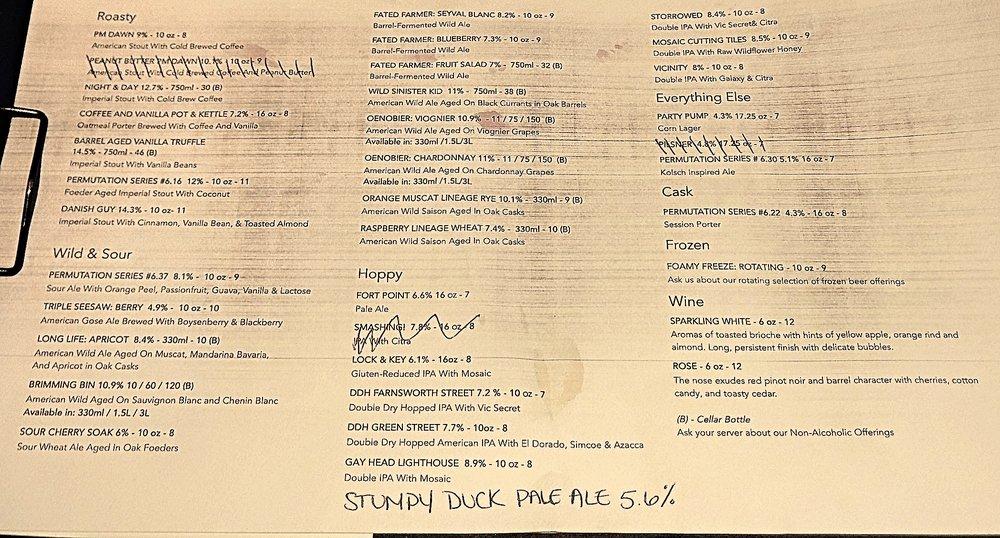 Roasty
PM DAWN 9% - 10 oz - 8
American Stout With Cold Brewed Coffee
PEANUT BUTTER PM DAWN 10.1% - 10 oz - 9
American Stout With Cold Brewed Coffee And Peanut Butter
NIGHT & DAY 12.7% - 750ml - 30 (B)
Imperial Stout With Cold Brew Coffee
COFFEE AND VANILLA POT & KETTLE 7.2% - 16 oz - 8
Oatmeal Porter Brewed With Coffee And Vanilla
BARREL AGED VANILLA TRUFFLE
14.5% - 750ml - 46 (B)
Imperial Stout With Vanilla Beans
PERMUTATION SERIES #6.16 12% - 10 oz - 11
Foeder Aged Imperial Stout With Coconut
DANISH GUY 14.3% - 10 oz- 11
Imperial Stout With Cinnamon, Vanilla Bean, & Toasted Almond
Wild & Sour
PERMUTATION SERIES #6.37 8.1% - 10 oz - 9
Sour Ale With Orange Peel, Passionfruit, Guava, Vanilla & Lactose
TRIPLE SEESAW: BERRY 4.9% - 10 oz - 10
American Gose Ale Brewed With Boysenberry & Blackberry
LONG LIFE: APRICOT 8.4% - 330ml - 10 (B)
American Wild Ale Aged On Muscat, Mandarina Bavaria,
And Apricot in Oak Casks
BRIMMING BIN 10.9% 10 / 60 / 120 (B)
American Wild Ale Aged On Sauvignon Blanc and Chenin Blanc
Available in: 330ml / 1.5L / 3L
SOUR CHERRY SOAK 6% - 10 oz - 8
Sour Wheat Ale Aged In Oak Foeders
FATED FARMER: SEYVAL BLANC 8.2% - 10 oz - 9
Barrel-Fermented Wild Ale
FATED FARMER: BLUEBERRY 7.3% - 10 oz - 9
Barrel-Fermented Wild Ale
FATED FARMER: FRUIT SALAD 7% - 750ml - 32 (B)
Barrel-Fermented Wild Ale
WILD SINISTER KID 11% - 750ml - 38 (B)
American Wild Ale Aged On Black Currants in Oak Barrels
OENOBIER: VIOGNIER 10.9% - 11 / 75 / 150 (B)
American Wild Ale Aged On Viognier Grapes
Available in: 330ml /1.5L/3L
OENOBIER: CHARDONNAY 11% - 11 / 75 / 150 (B)
American Wild Ale Aged On Chardonnay Grapes
Available in: 330ml /1.5L/3L
ORANGE MUSCAT LINEAGE RYE 10.1% - 330ml - 9 (B)
American Wild Saison Aged In Oak Casks
RASPBERRY LINEAGE WHEAT 7.4% - 330ml - 10 (B)
American Wild Saison Aged In Oak Casks
Hoppy
FORT POINT 6.6% 16 oz - 7
Pale Ale
SMASHING! 7.8% - 16 oz - 8
IPA With Citra
LOCK & KEY 6.1% - 16oz - 8
Gluten-Reduced IPA With Mosaic
DDH FARNSWORTH STREET 7.2 % - 10 oz - 7
Double Dry Hopped IPA With Vic Secret
DDH GREEN STREET 7.7% - 10oz - 8
Double Dry Hopped American IPA With El Dorado, Simcoe & Azacca
GAY HEAD LIGHTHOUSE 8.9% - 10 oz - 8
Double IPA With Mosaic
STUMPY DUCK PALE ALE 5.6%
STORROWED 8.4% - 10 oz - 8
Double IPA With Vic Secret& Citra
MOSAIC CUTTING TILES 8.5% - 10 oz - 9
Double IPA With Raw Wildflower Honey
VICINITY 8% - 10 oz - 8
Double IPA With Galaxy & Citra
Everything Else
PARTY PUMP 4.3% 17.25 oz - 7
Corn Lager
PILSNER 4.8% 17.25 oz - 7
PERMUTATION SERIES # 6.30 5.1% 16 oz - 7
Kolsch Inspired Ale
Cask
PERMUTATION SERIES #6.22 4.3% - 16 oz - 8
Session Porter
Frozen
FOAMY FREEZE: ROTATING - 10 oz - 9
Ask us about our rotating selection of frozen beer offerings
Wine
SPARKLING WHITE - 6 oz - 12
Aromas of toasted brioche with hints of yellow apple, orange rind and
almond. Long, persistent finish with delicate bubbles.
ROSE - 6 oz - 12
The nose exudes red pinot noir and barrel character with cherries, cotton
candy, and toasty cedar.
(B) - Cellar Bottle
Ask your server about our Non-Alcoholic Offerings